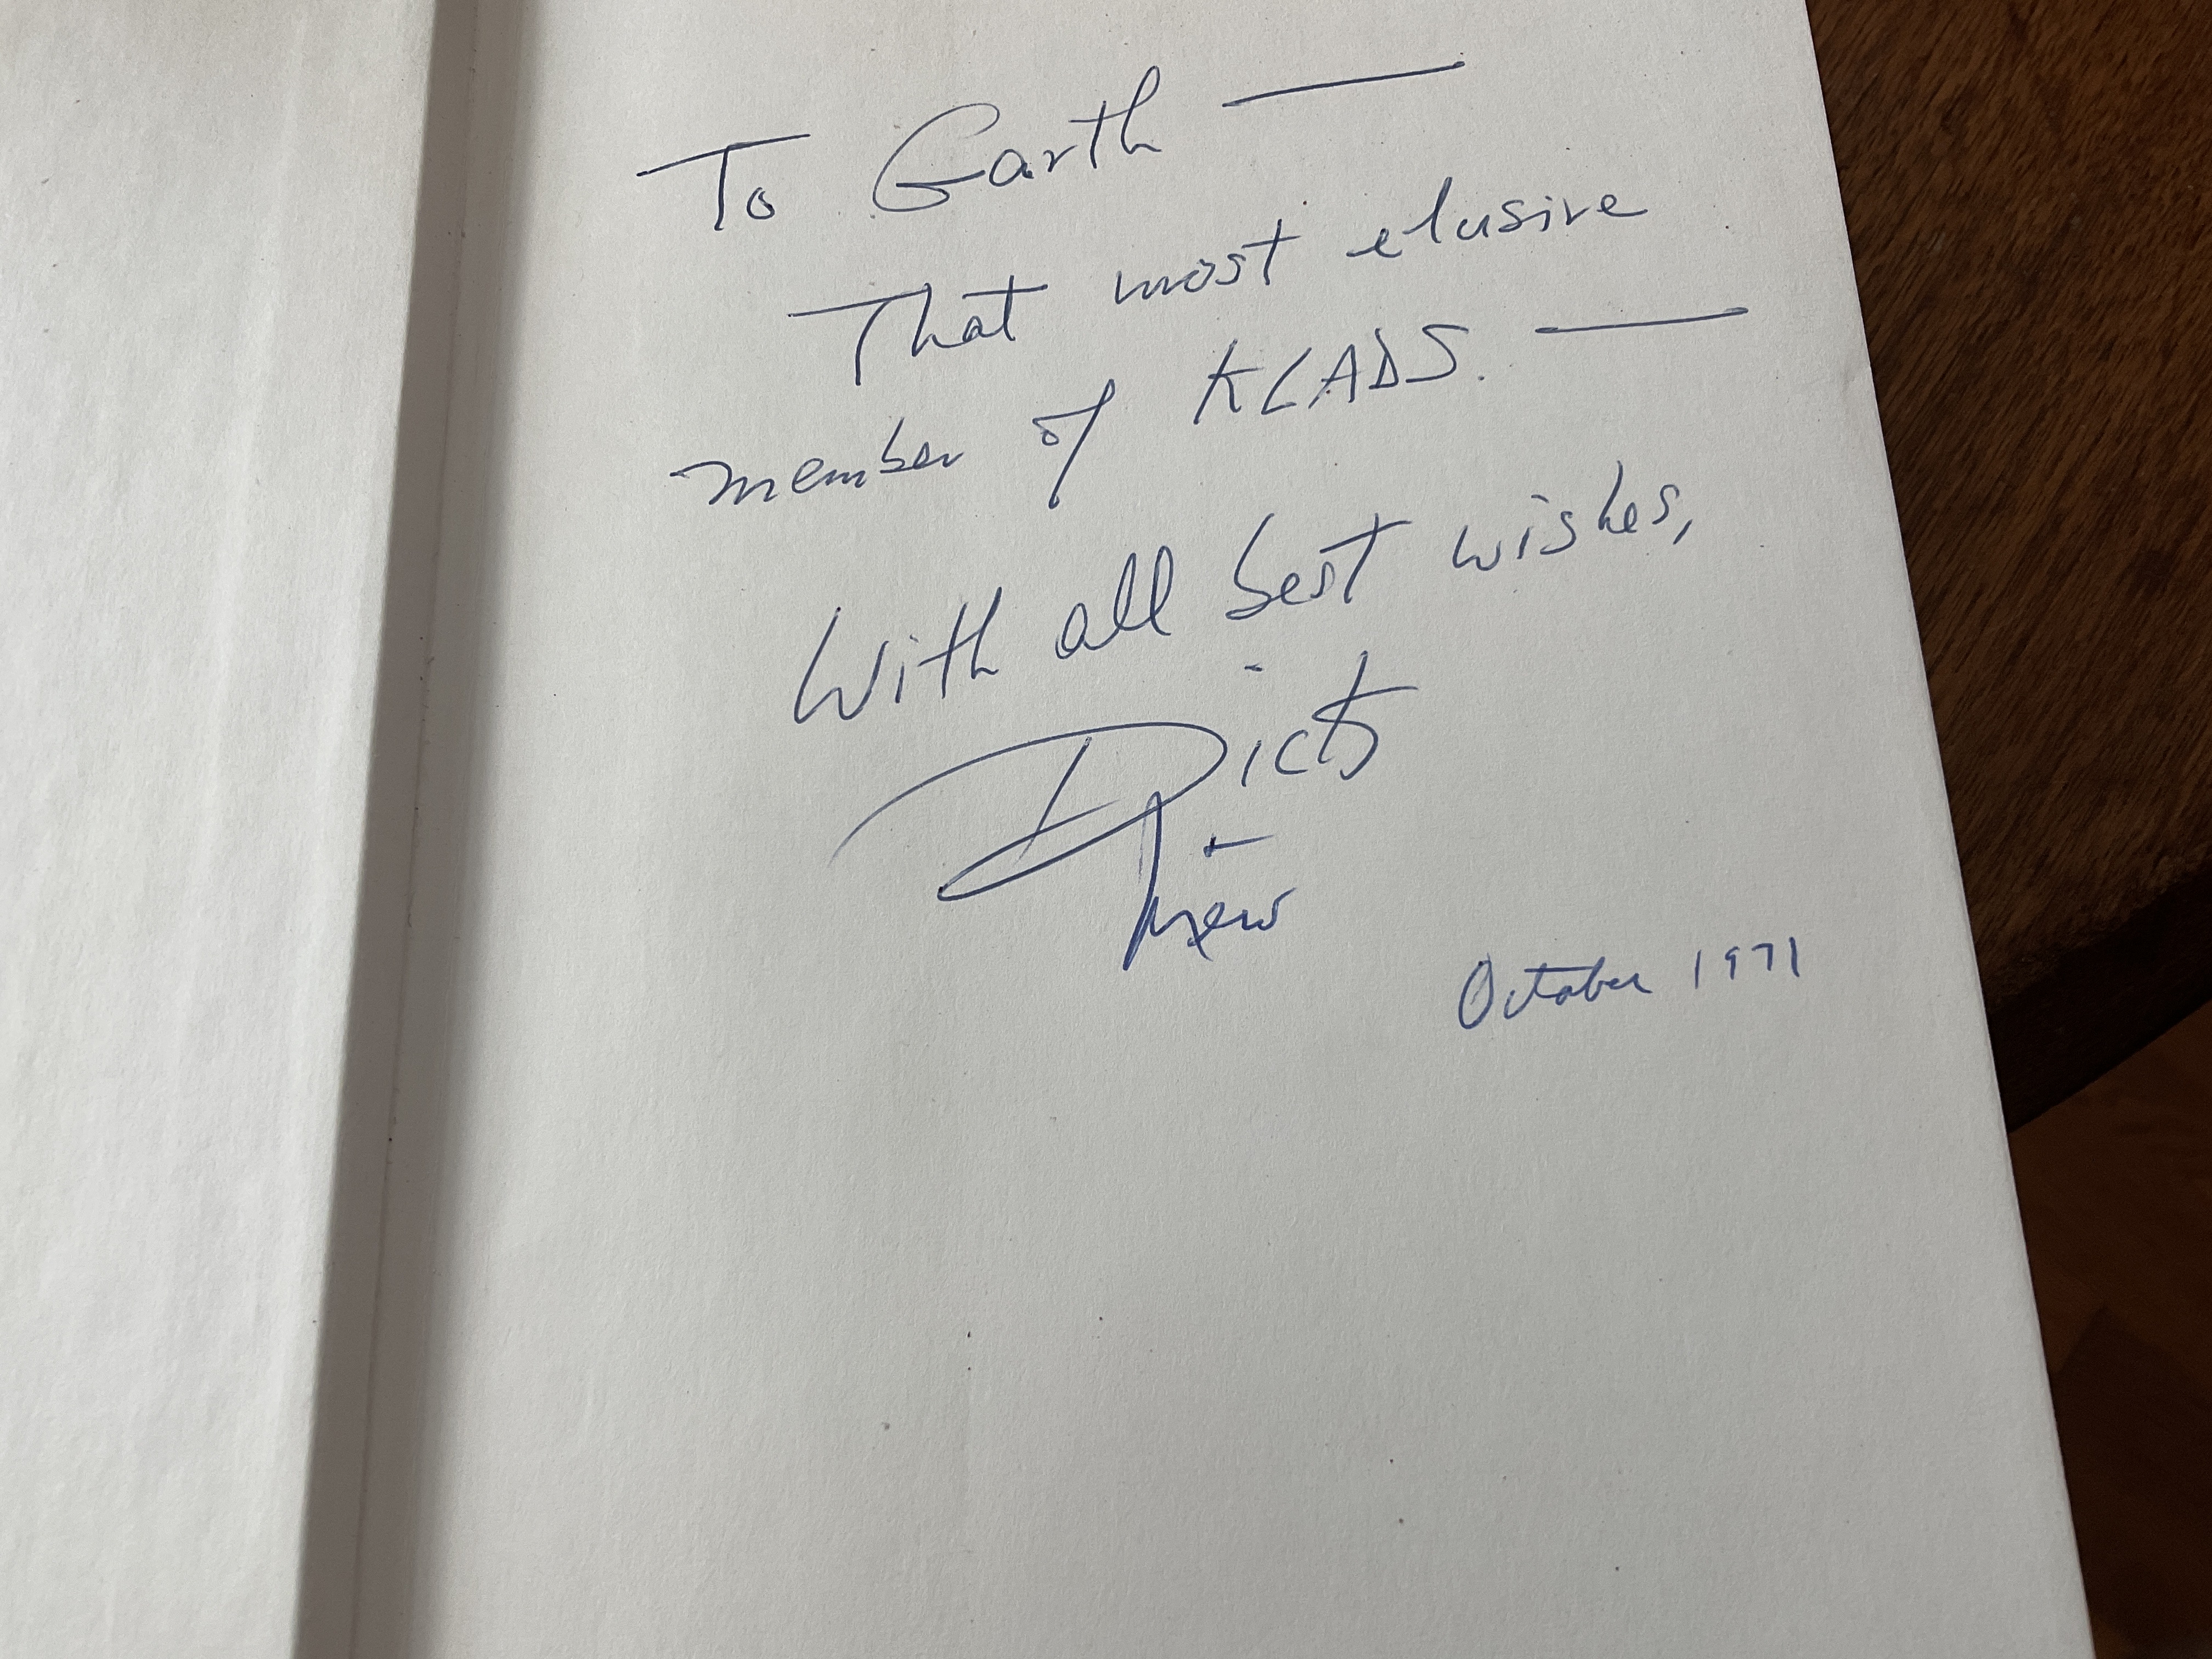 To Garth —
That most elusive
member of KLADS. —
With all best wishes,
Dick
October 1971